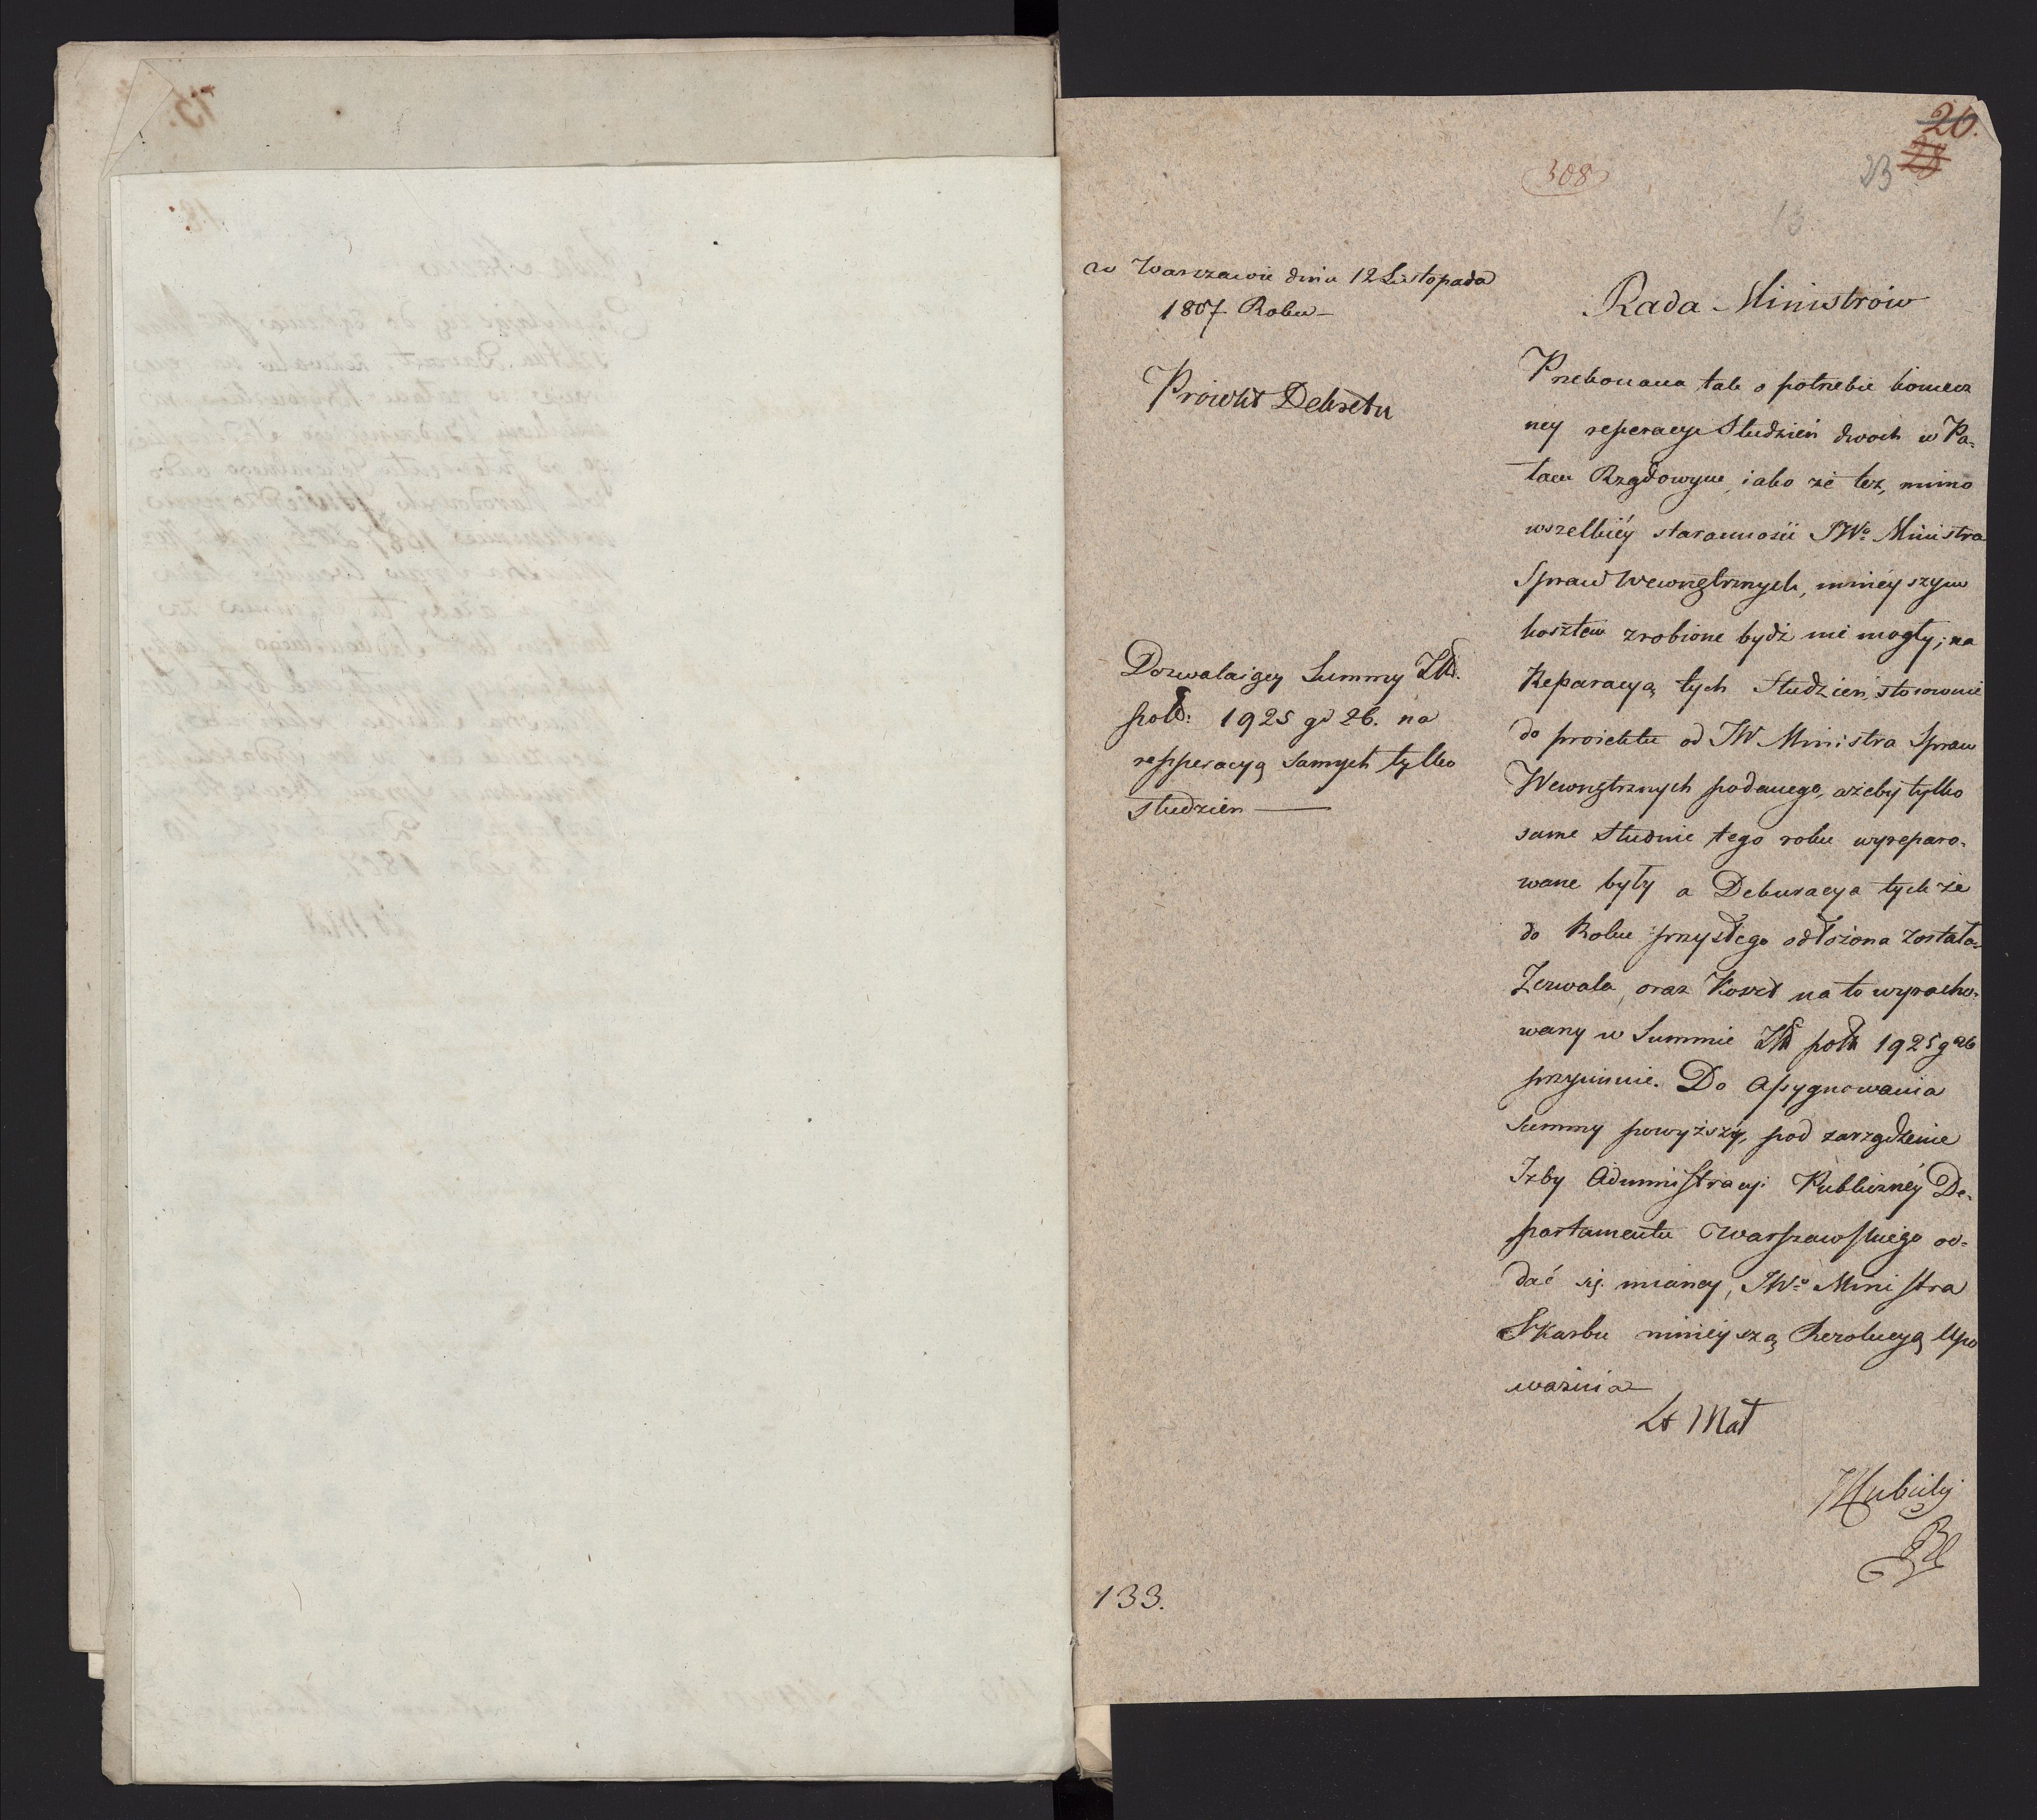 26.
23
308
13
w Warszawie dnia 12 Listopada
1807 Roku –
Proiekt Dekretu
Dozwalaiący Summy Zł.
pol: 1925 gr 26. na
repperacyą samych tylko
studzien —
133.
Rada Ministrów
Przekonana tak o potrzebie koniecz
ney reperacyi Studzień dwoch w Pa-
łacu Rządowym, iako że też, mimo
wszelkiéy staranności JWo Ministra
Spraw Wewnętrznych, mnieyszym
kosztem zrobione bydź nie mogły; na
Reparacyą tych Studzień, stosownie
do proiektu od JW Ministra Spraw
Wewnętrznych podanego, ażeby tylko
same studnie tego roku wyreparo-
wane były a Dekoracya tychże
do Roku przyszłego odłożona została
Zezwala, oraz Koszt na to wyracho-
wany w Summie Zł pol 1925 g 26
przyimuie. Do assygnowania
Summy powyższéy, pod zarządzenie
Izby Administracyi Publicznéy De-
partamentu Warszawskiego od-
dać się maiącey, JWo Ministra
Skarbu nineyszą Rezolucyą Upo
ważnia
St Mał